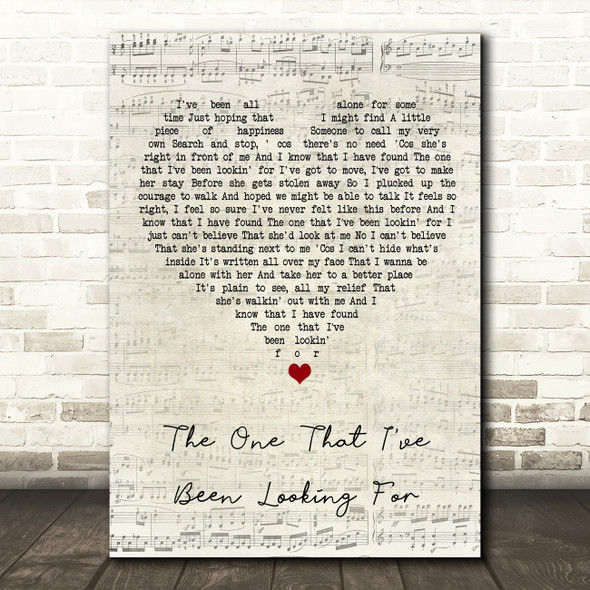 I've been all alone for some
time Just hoping that I might find A little
piece of happiness Someone to call my very
own Search and stop, ' cos there's no need 'Cos she's
right in front of me And I know that I have found The one
that I've been lookin' for I've got to move, I've got to make
her stay Before she gets stolen away So I plucked up the
courage to walk And hoped we might be able to talk It feels so
right, I feel so sure I've never felt like this before And I
know that I have found The one that I've been lookin' for I
just can't believe That she'd look at me No I can't believe
That she's standing next to me 'Cos I can't hide what's
inside It's written all over my face That I wanna be
alone with her And take her to a better place
It's plain to see, all my relief That
she's walkin' out with me And I
know that I have found
The one that I've
been lookin'
f o r
The One That I've
Been Looking For